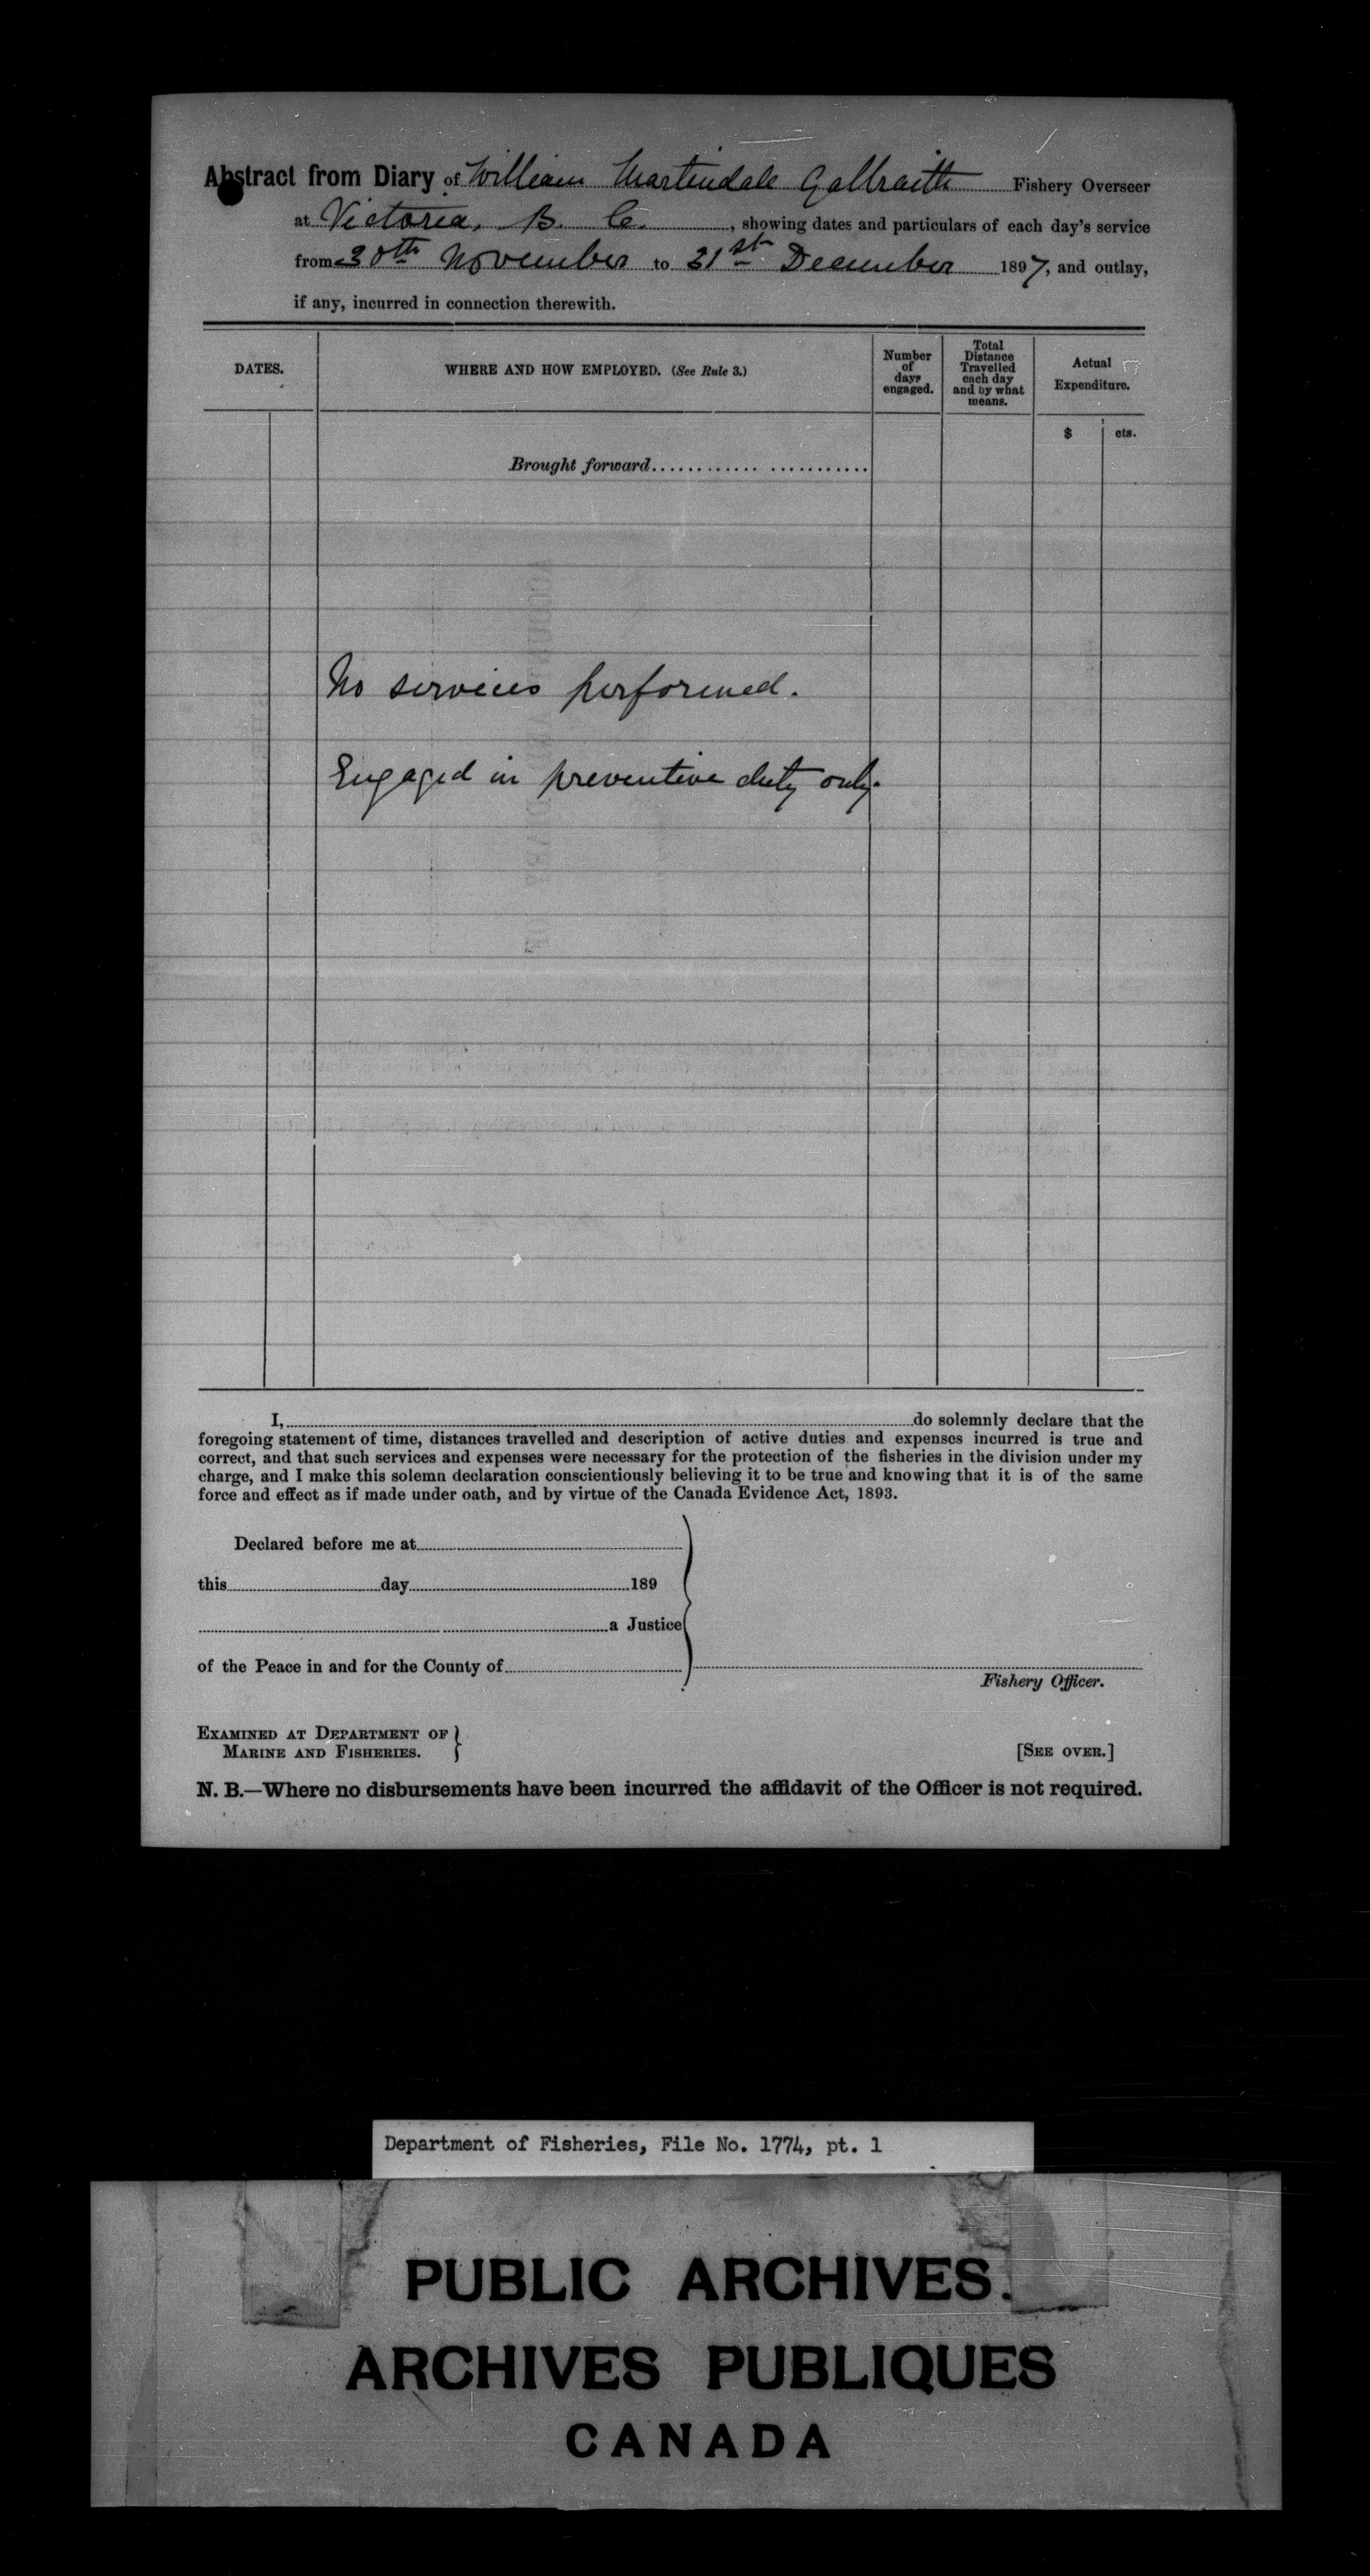 Abstract from Diary of William Martindale Galbraith Fishery Overseer
at Victoria, B. C. , showing dates and particulars of each day's service
from 30th November to 31st December 1897, and outlay,
if any, incurred in connection therewith.
DATES.
WHERE AND HOW EMPLOYED. (See Rule 3.)
Number
of
days
engaged.
Total
Distance
Travelled
each day
and by what
means.
Actual
Expenditure.
$ cts.
Brought forward............ ...........
No services performed.
Engaged in preventive duty only.
I, do solemnly declare that the
foregoing statement of time, distances travelled and description of active duties and expenses incurred is true and
correct, and that such services and expenses were necessary for the protection of the fisheries in the division under my
charge, and I make this solemn declaration conscientiously believing it to be true and knowing that it is of the same
force and effect as if made under oath, and by virtue of the Canada Evidence Act, 1893.
Declared before me at
this day 189
a Justice
of the Peace in and for the County of
Fishery Officer.
EXAMINED AT DEPARTMENT OF
MARINE AND FISHERIES.
[SEE OVER.]
N. B.—Where no disbursements have been incurred the affidavit of the Officer is not required.
Department of Fisheries, File No. 1774, pt. 1
PUBLIC ARCHIVES.
ARCHIVES PUBLIQUES
CANADA